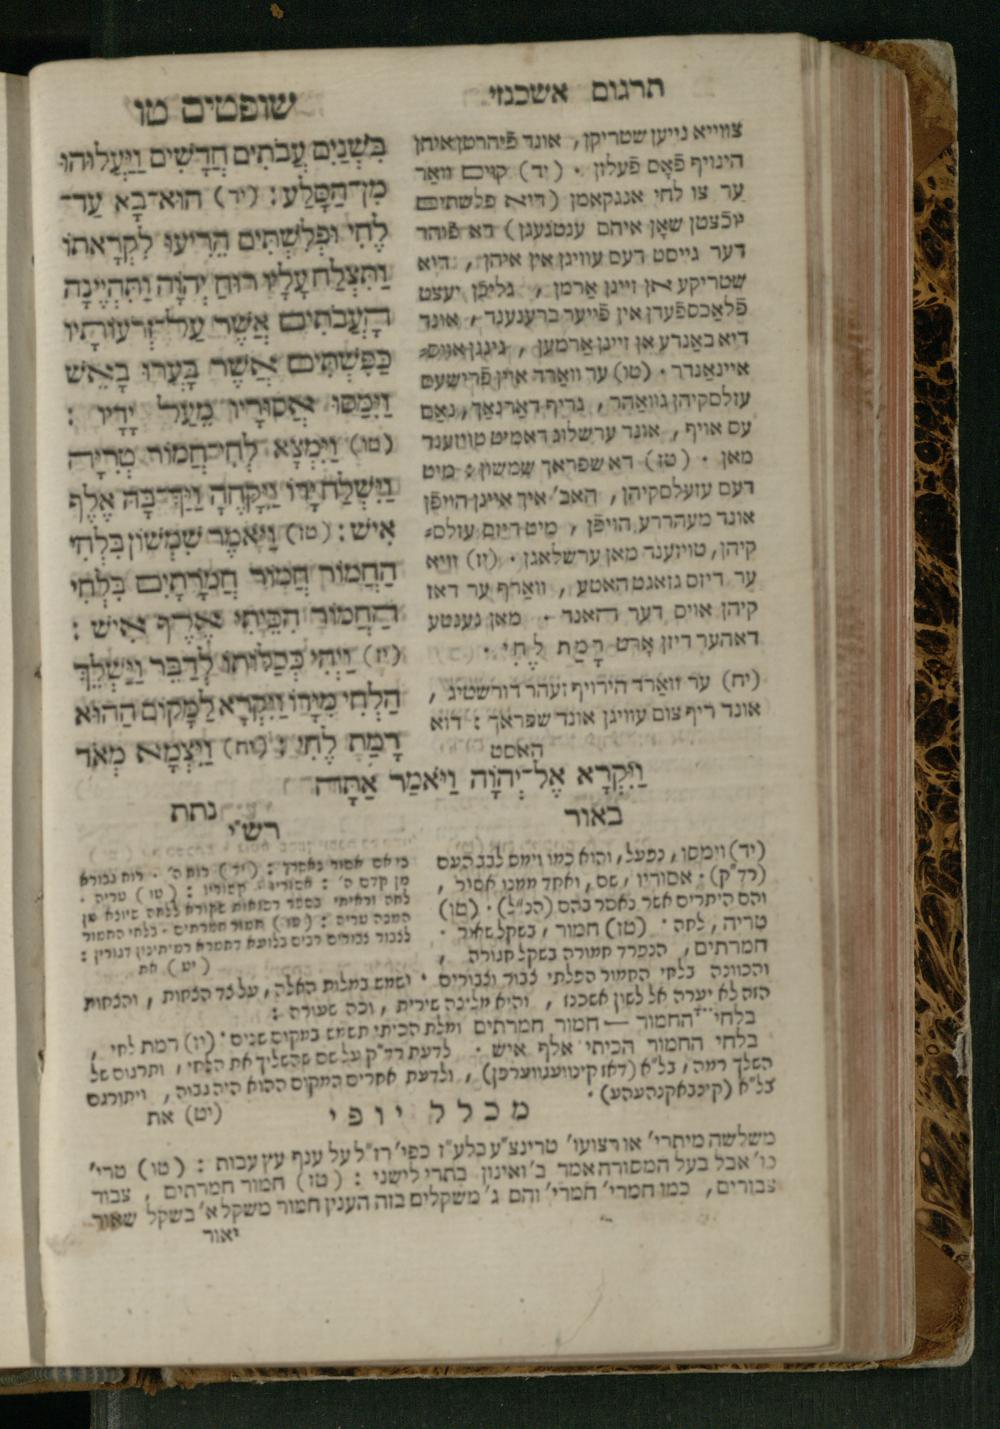 תרגום אשכנזי
שופטים טו
צווייא נייען שטריקן, אונד פֿיהרטן איהן
הינויף פֿאָם פֿעלזן. (יד) קוים וואַר
ער צו לחי אנגקאמן (דיא פלשתים
שאָן איהם ענטגעגן) דא פֿוהר
דער גייסט דעם עוויגן אין איהן, דיא
שטריקע אן זיינן אַרמן, גליכֿן יעצט
פֿלאַכספֿעדן אין פֿייער ברענענד, אונד
דיא באַנדע אן זיינן אַרמען, גינגן אויס=
איינאַנדר. (טו) ער וואַרד איין פֿרישעס
עזלסקיהן געוואַהר, גריף דאַרנאַך, נאַם
עס אויף, אונד ערשלוג דאמיט טויזענד
מאן. (טז) דא שפראך שמשון: מיט
דעם עזעלסקיהן, האב' איך איינן הויפֿן
אונד מעהררע הויפֿן, מיט דיזם עזלס=
קיהן, טויזענד מאן ערשלאגן. (יז) וויא
ער דיזס גזאגט האטע, וואַרף ער דאז
קיהן אויס דער האנד. מאן נענטע
דאהער דיזן אָרט רָמַת לֶחִי.
(יח) ער וואַרד הירויף זעהר דורשטיג,
אונד ריף צום עוויגן אונד שפראך: דוא
האסט
בִּשְׁנַיִם עֲבֹתִים חֲדָשִׁים וַיַּעֲלוּהוּ
מִן־הַסָּלַע: (יד) הוּא־בָא עַד־
לֶחִי וּפְלִשְׁתִּים הֵרִיעוּ לִקְרָאתוֹ
וַתִּצְלַח עָלָיו רוּחַ יְהוָֹה וַתִּהְיֶינָה
הָעֲבֹתִים אֲשֶׁר עַל־זְרוֹעוֹתָיו
כַּפִּשְׁתִּים אֲשֶׁר בָּעֲרוּ בָאֵשׁ
וַיִּמַּסּוּ אֱסוּרָיו מֵעַל יָדָיו:
(טו) וַיִּמְצָא לְחִי־חֲמוֹר טְרִיָּה
וַיִּשְׁלַח יָדוֹ וַיִּקָּחֶהָ וַיַּךְ־בָּהּ אֶלֶף
אִישׁ: (טז) וַיֹּאמֶר שִׁמְשׁוֹן בִּלְחִי
הַחֲמוֹר חֲמוֹר חֲמֹרָתָיִם בִּלְחִי
הַחֲמוֹר הִכֵּיתִי אֶלֶף אִישׁ:
(יז) וַיְהִי כְּכַלּוֹתוֹ לְדַבֵּר וַיַּשְׁלֵךְ
הַלְחִי מִיָּדוֹ וַיִּקְרָא לַמָּקוֹם הַהוּא
רָמַת לֶחִי: (יח) וַיִּצְמָא מְאֹד
וַיִּקְרָא אֶל־יְהוָֹה וַיֹּאמַר אַתָּה
נתת
באור
(יד) וימסו, נפעל, והוא כמו וימס לבב העם
(רד"ק). אסוריו, שם, ואקד ממנו אסור,
והם היתרים אשר נאסר בהם (הנ"ל). (טו)
טריה, לחה. (טז) חמור, בשקל שאור.
חמרתים, הנפרד חמורה בשקל,
והכוונה בלחי החמור הפלתי צבור וצבורים. ושמש במלות האלה, על צד הצחות, והצחות
הזה לא יערה אל לשון אשכנז, והיא מליצה שירית, וכה שעורה:
בלחי החמור — חמור חמרתים
בלחי החמור הכיתי אלף איש.
ומלת הכיתי תשמש במקום שנים. (יז) רמת לחי,
לדעת רד"ק על שם שהשליך את הלחי, ותרגום של
השלך רמה, בל"א (דאז קינוועגווערפן), ולדעת אחרים המקום ההוא היה גבוה, ויתורגם
בל"א (קינבאקנהעהע).
(יט) את
רש"י
כי אם אסור נאסרך: (יד) רוח ה'. רוח גבורא
מן קדם ה': אסוריו. קשוריו: (טו) טריה.
לחה וראיתי בספר רפואות שקורא ללחה שיוצא מן
המכה טריה: (טז) חמור חמרתים. בלחי החמור
לצבור צבורים רבים בלועא דחמרא רמיתינון דגורין:
(יט) את
מכלל יופי
משלשה מיתרי' או רצועו' טרינצ"ע בלע"ז כפי' רז"ל על ענף עץ עבות: (טו) טרי'
כו' אבל בעל המסורה אמר ב' ואינון בתרי לישני: (טז) חמור חמרתים, צבור
צבורים, כמו חמרי' חמרי' והם ג' משקלים בזה הענין חמור משקל א' בשקל שאור
יאור